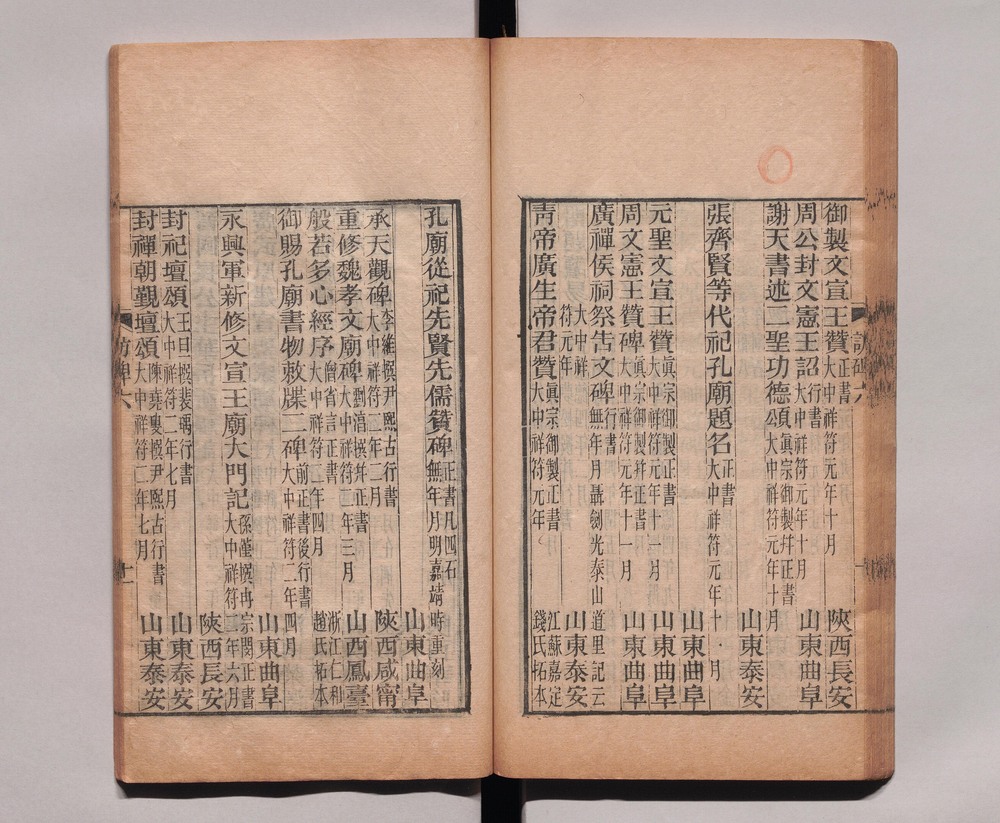 御製文宣王贊 正書 大中祥符元年十月 陝西長安
周公封文憲王詔 行書 大中祥符元年十月 山東曲阜
謝天書述二聖功德頌 眞宗御製幷正書 大中祥符元年十月 山東泰安
張齊賢等代祀孔廟題名 正書 大中祥符元年十一月 山東曲阜
元聖文宣王贊 眞宗御製正書 大中祥符元年十一月 山東曲阜
周文憲王贊碑 眞宗御製幷正書 大中祥符元年十一月 山東曲阜
廣禪侯祠祭告文碑 行書 無年月聶劍光泰山道里記云大中祥符元年 山東泰安
靑帝廣生帝君贊 眞宗御製正書 大中祥符元年 江蘇嘉定錢氏拓本
孔廟從祀先賢先儒贊碑 正書凡四石 無年月明嘉靖時重刻 山東曲阜
承天觀碑 李維撰尹熙古行書 大中祥符二年二月 陝西咸甯
重修魏孝文廟碑 撰幷正書 大中祥符二年三月 山西鳳臺
般若多心經序 僧省言正書 大中祥符二年四月 浙江仁和趙氏拓本
御賜孔廟書物敕牒二碑 前正書後行書 大中祥符二年四月 山東曲阜
永興軍新修文宣王廟大門記 孫僅撰冉宗閔正書 大中祥符二年六月 陝西長安
封祀壇頌 王旦撰裴瑀行書 大中祥符二年七月 山東泰安
封禪朝覲壇頌 陳堯叟撰尹熙古行書 大中祥符二年七月 山東泰安
訪碑六 十一